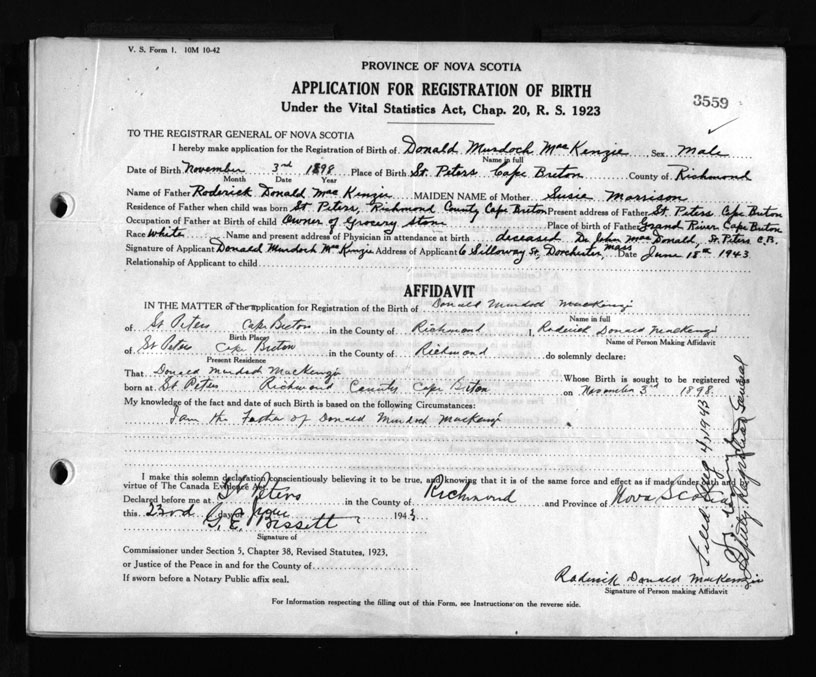 V. S. Form 1. 10M 10-42
PROVINCE OF NOVA SCOTIA
APPLICATION FOR REGISTRATION OF BIRTH
3559
Under the Vital Statistics Act, Chap. 20, R. S. 1923
TO THE REGISTRAR GENERAL OF NOVA SCOTIA
I hereby make application for the Registration of Birth of Donald Murdoch MacKenzie Sex Male
Name in full
Date of Birth November 3rd 1898 Place of Birth St. Peters Cape Breton County of Richmond
Month Date Year
Name of Father Roderick Donald MacKenzie MAIDEN NAME of Mother Susie Morrison
Residence of Father when child was born St Peters, Richmond County Cape Breton Present address of Father St. Peters Cape Breton
Occupation of Father at Birth of child Owner of Grocery Store Place of birth of Father Grand River Cape Breton
Race White Name and present address of Physician in attendance at birth deceased Dr John MacDonald, St. Peters C.B.
Signature of Applicant Donald Murdoch MacKenzie Address of Applicant 6 Silloway St, Dorchester, Mass Date June 18th 1943
Relationship of Applicant to child
AFFIDAVIT
IN THE MATTER of the application for Registration of the Birth of Donald Murdoch MacKenzie
Name in full
of St Peters Cape Breton in the County of Richmond I, Roderick Donald MacKenzie
Birth Place Name of Person Making Affidavit
of St Peters Cape Breton in the County of Richmond do solemnly declare:
Present Residence
That Donald Murdoch MacKenzie Whose Birth is sought to be registered was
born at St Peters Richmond County Cape Breton on November 3rd 1898
My knowledge of the fact and date of such Birth is based on the following Circumstances:
I am the Father of Donald Murdoch MacKenzie
I make this solemn declaration conscientiously believing it to be true, and knowing that it is of the same force and effect as if made under oath and by
virtue of The Canada Evidence Act.
Declared before me at St Peters in the County of Richmond and Province of Nova Scotia
this 23rd day of June 1943
G. E. Bissett
Signature of
Commissioner under Section 5, Chapter 38, Revised Statutes, 1923,
or Justice of the Peace in and for the County of
If sworn before a Notary Public affix seal.
Roderick Donald MacKenzie
Signature of Person making Affidavit
For Information respecting the filling out of this Form, see Instructions on the reverse side.
Filed Aug 4, 1943
Deputy Registrar General